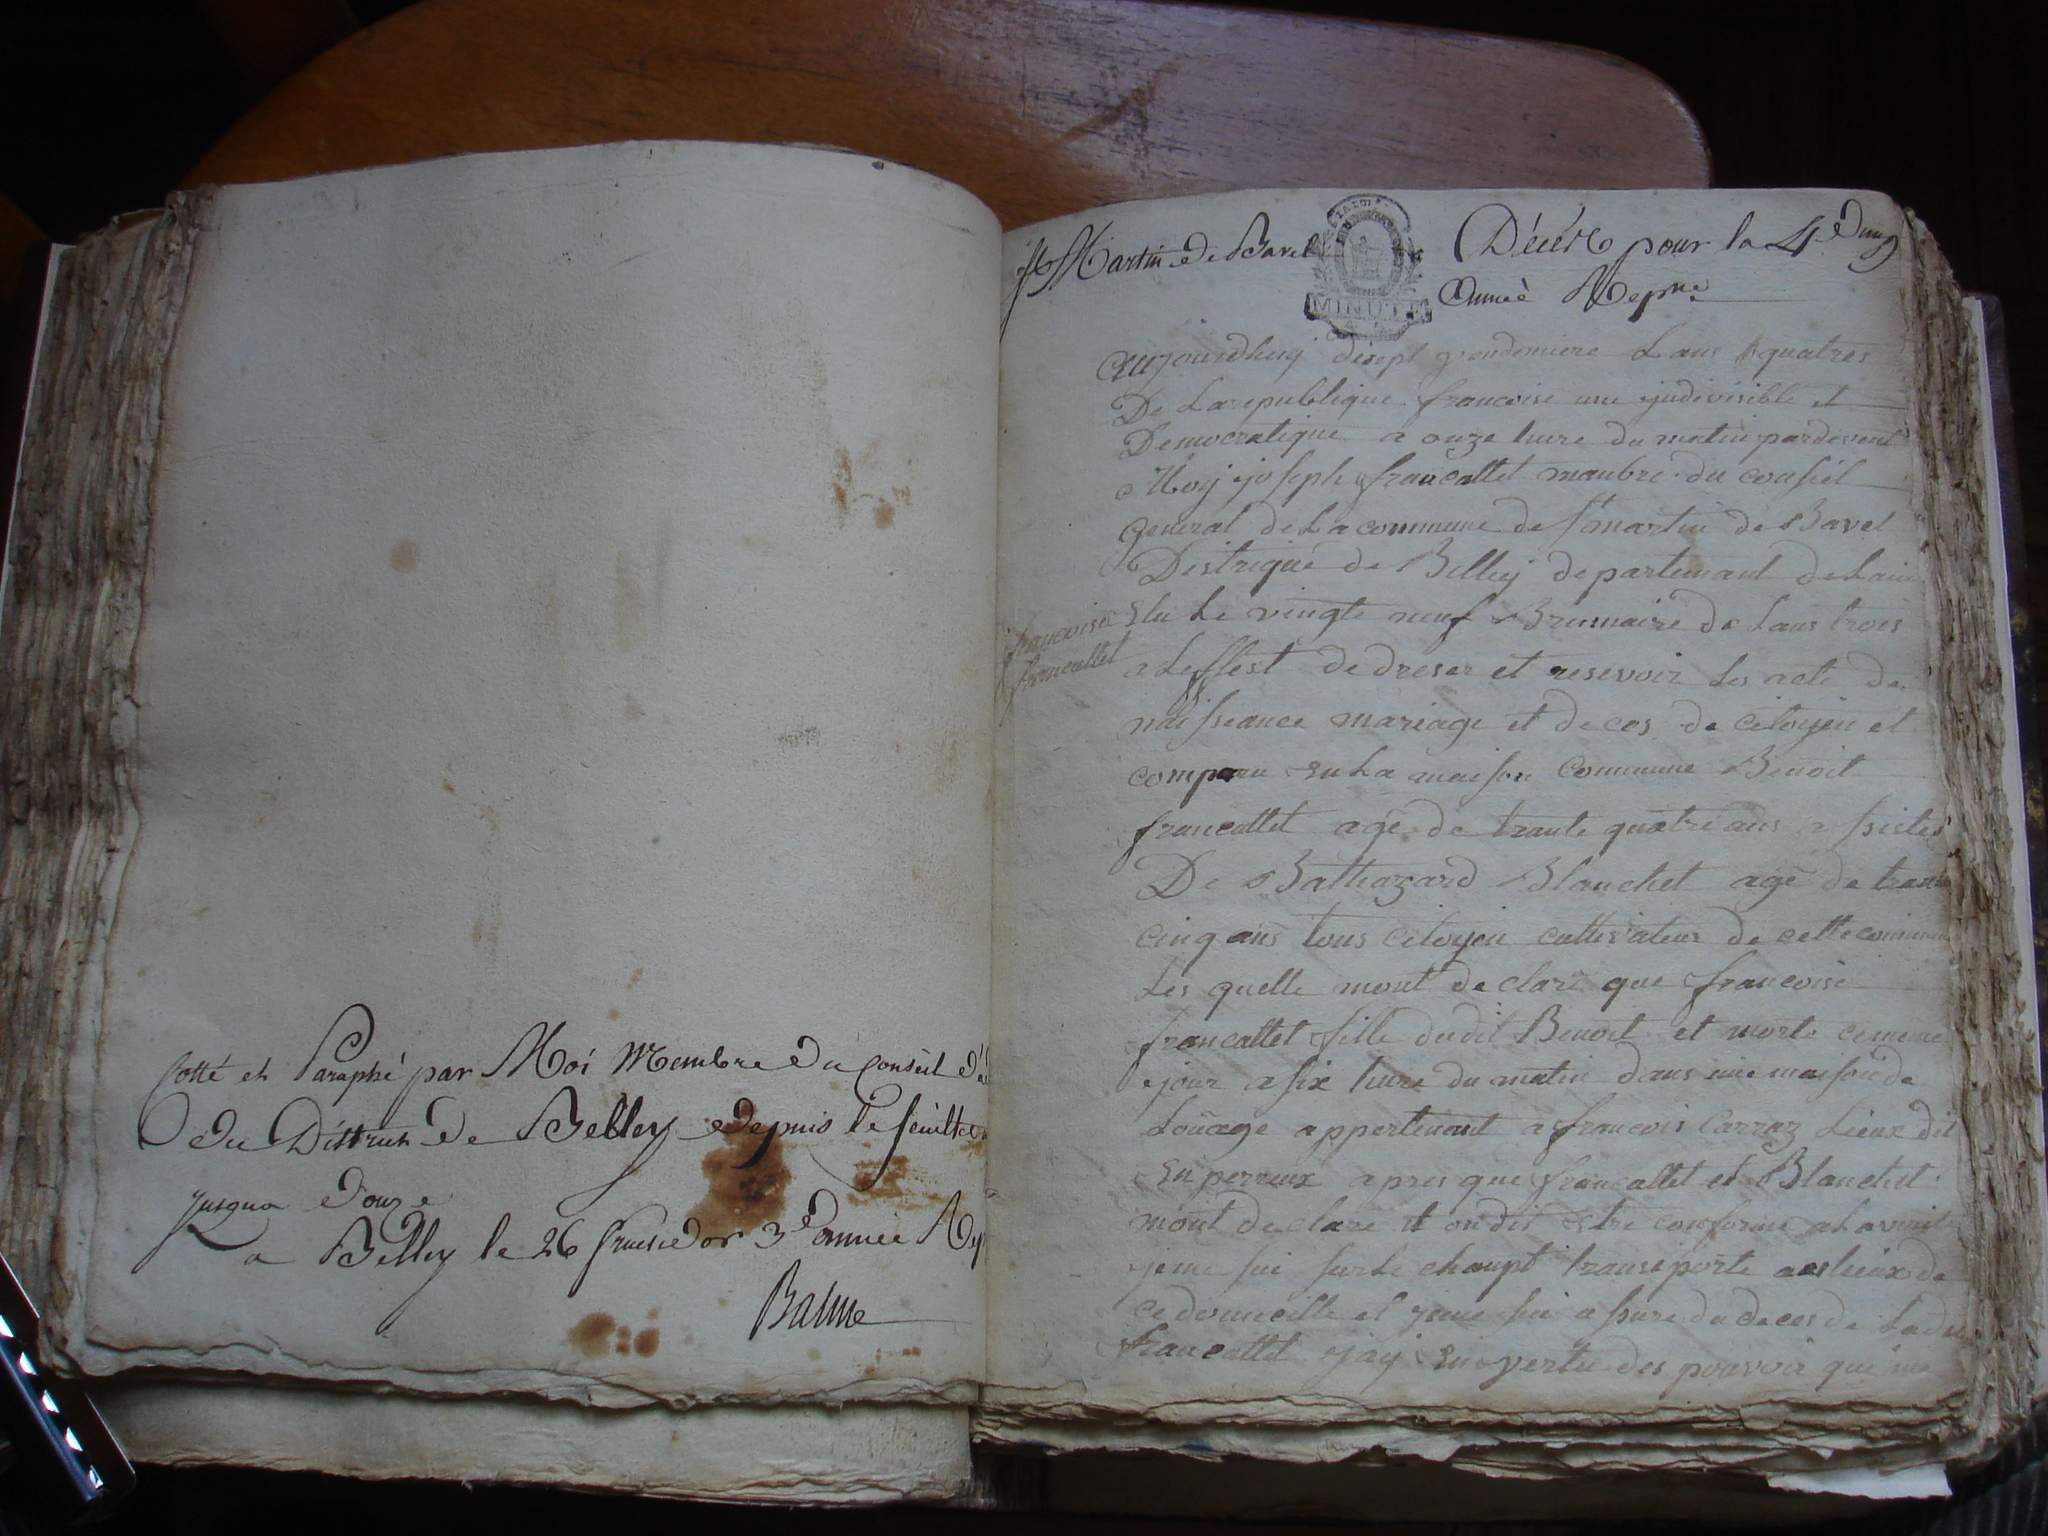 Cotté et Paraphé par Moi Membre du Conseil
du District de Belley depuis le feuillet
jusqua douze
a Belley le 26 fructidor 3e année Rep
Balme
St Martin de Bavel
LA LOI
MINUTE
Décès pour la 4e
année Repne
francoise
francallet
aujourdhuy disept vendemiere Lans quatres
De La republique francoise une yndivisible et
Democratique a onze heure du matin pardevent
Moy joseph francallet manbre du conseil
general de La commune de st martin de Bavel
Destrique de Belley departemant de Lain
Elu Le vingte neuf Brumaire de Lans trois
a Leffest de dreser et resevoir Les acte de
naisseance mariage et deces de citoyen et
comparu en La maison commune Benoit
francallet agé de trante quatre ans
De Balthazard Blanchet agé de trante
cinq ans tous citoyen cultivateur de cette commune
Les quelle mont de claré que francoise
francallet fille dudit Benoit et morte ce meme
jour a six heure du matin dans une maison de
Loüage appertenant a francois Carraz Lieux dit
En perreux apres que francallet et Blanchet
mont de clare et on dit Estre conforme a La verite
je me sui sur Le chanpt transporte a es lieux de
ce domicille et je me sui a sure du deces de La dite
francallet jay En vertu des pouvoir qui me